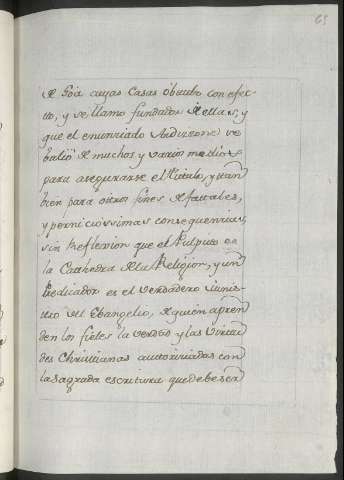 65
de Goa cuyas Casas obtubo con efec-
to, y se llamo fundador de ellas, y
que el enunciado Ardizone se
balió de muchos y varios medios
para asegurarse el titulo, y tam
bien para otros fines defatales,
y perniciosissimas consequencias,
sin Reflexion que el Pulpito es
la Cathedra de la Religion, y un
Predicador es el verdadero minis-
tro del Evangelio, de quien apren
den los fieles la verdad y las virtu
des Christianas autorizadas con
la sagrada escritura que debe ser